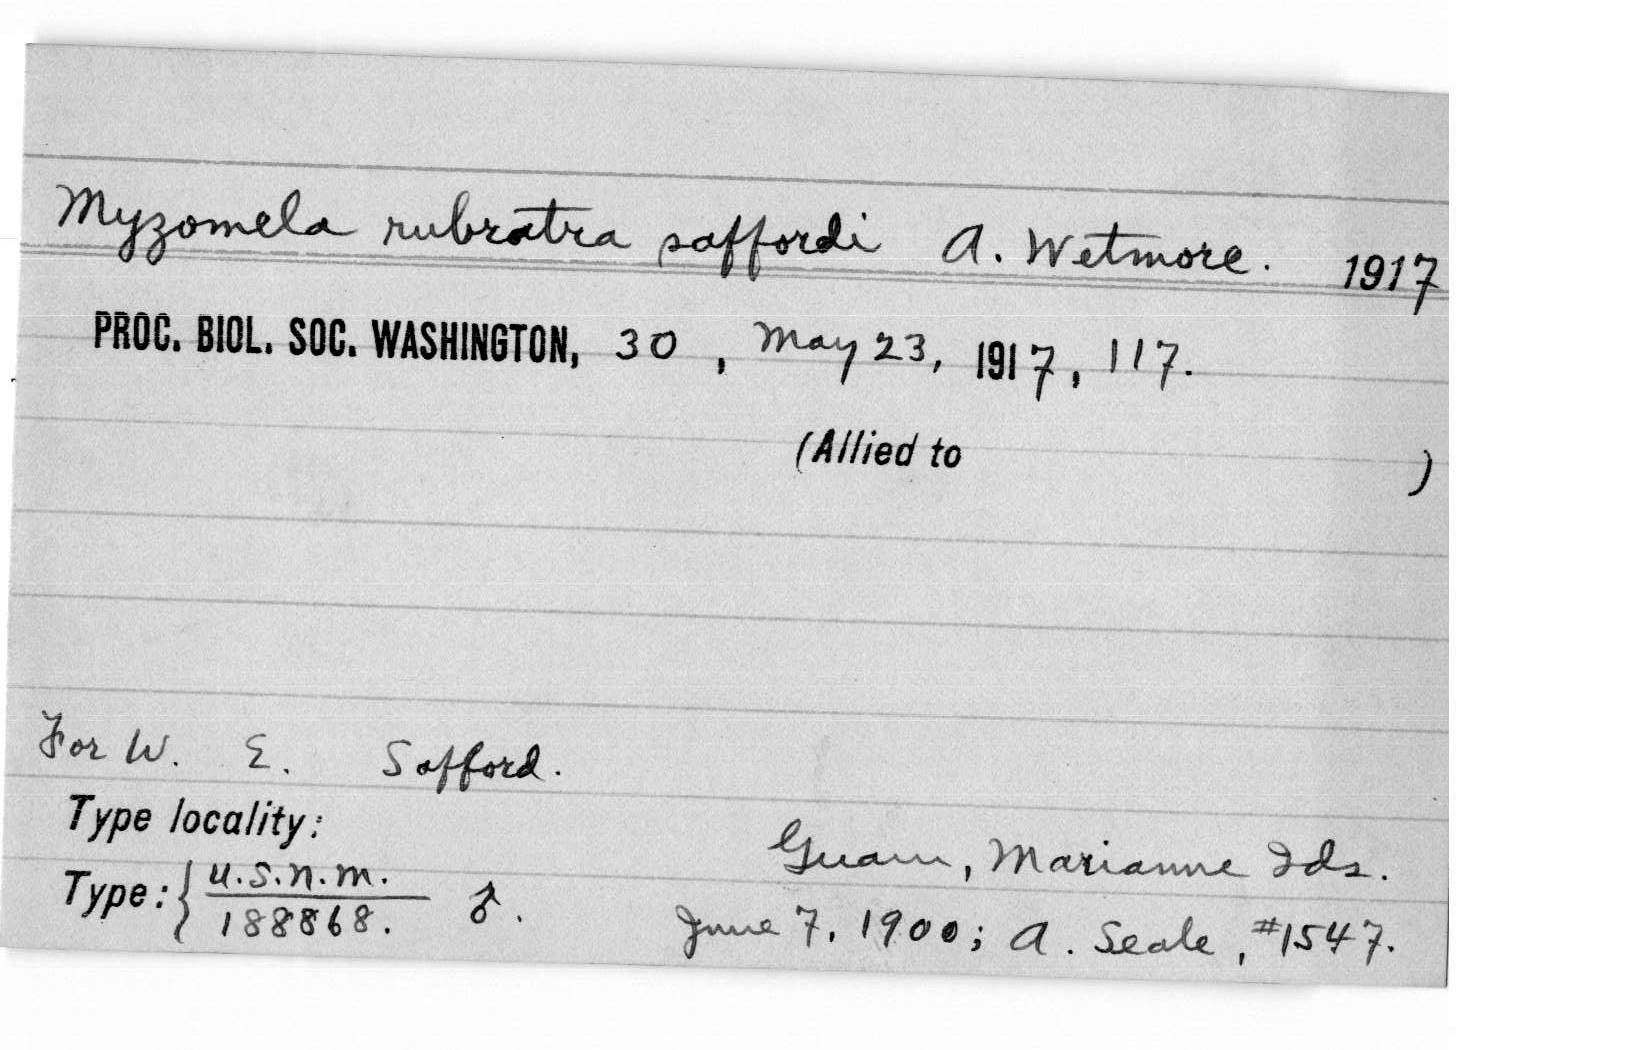 Myzomela rubratra saffordi A. Wetmore. 1917
PROC. BIOL. SOC. WASHINGTON, 30, May 23, 1917, 117.
(Allied to )
For W. E. Safford.
Type locality:
Guam, Marianne Ids.
Type: { U.S.N.M. / 188868. ♂.
June 7, 1900; A. Seale, #1547.